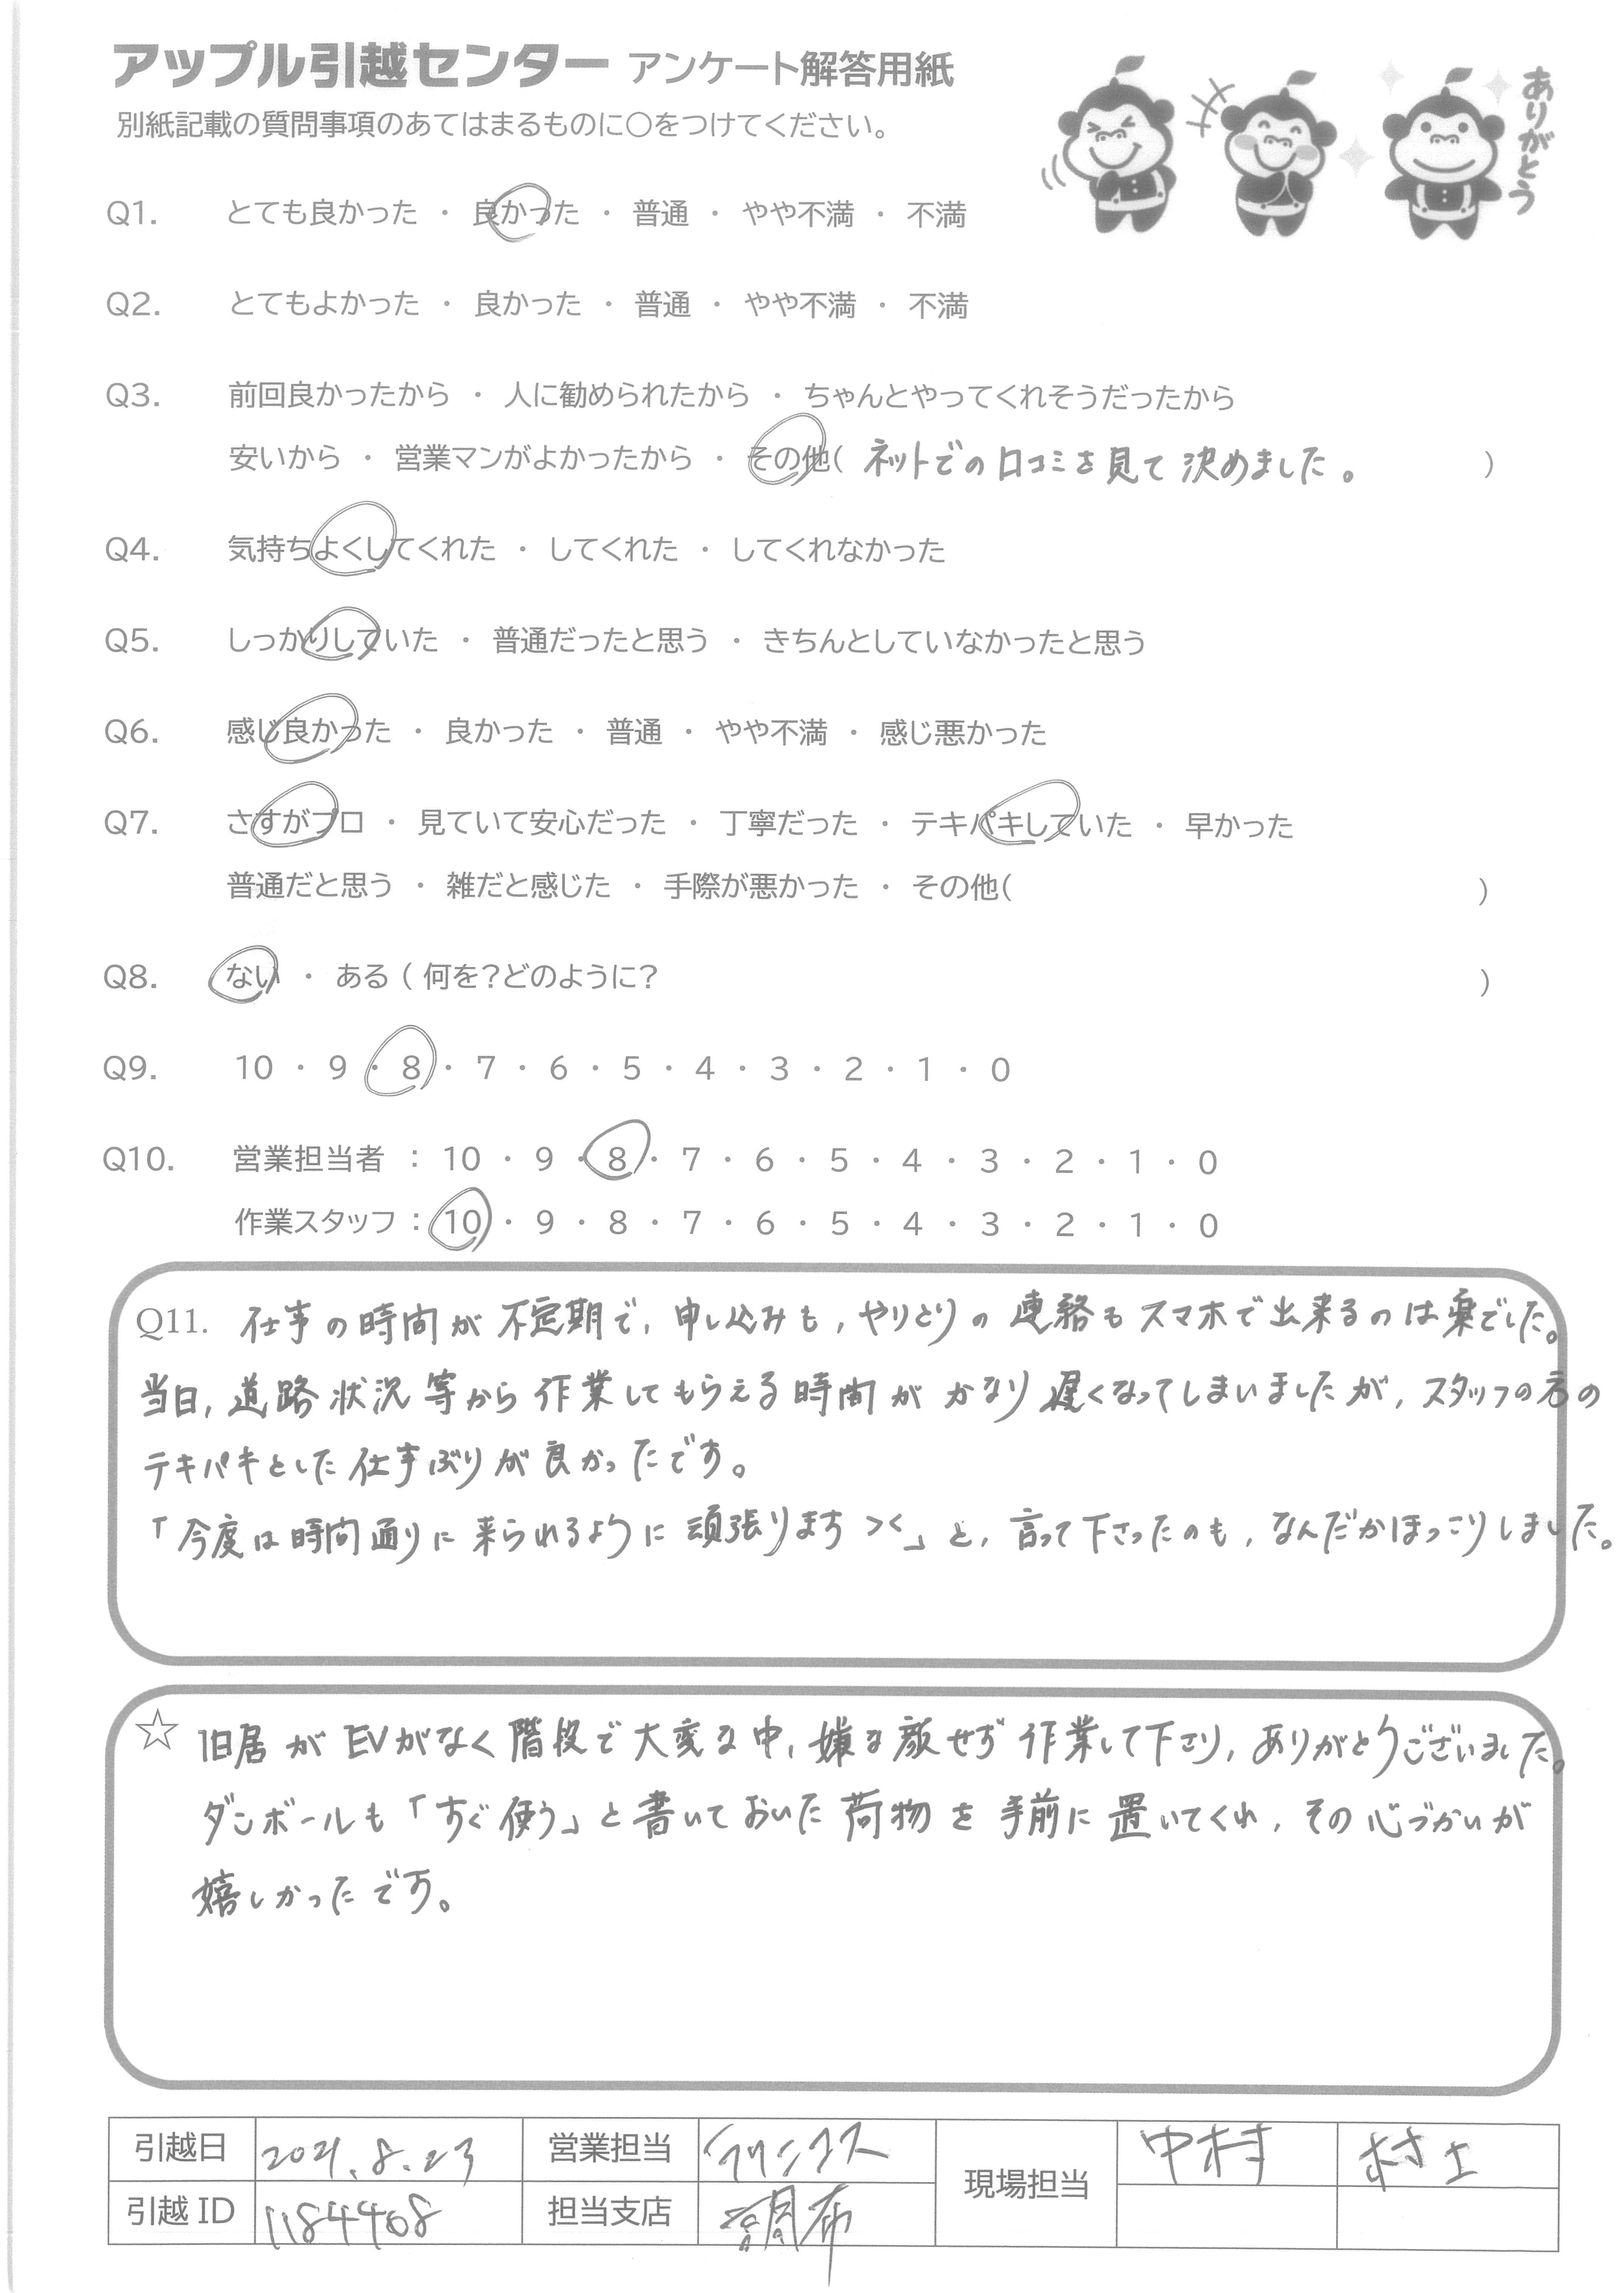 アップル引越センター アンケート解答用紙
別紙記載の質問事項のあてはまるものに○をつけてください。
ありがとう
Q1. とても良かった ・ 良かった ・ 普通 ・ やや不満 ・ 不満
Q2. とてもよかった ・ 良かった ・ 普通 ・ やや不満 ・ 不満
Q3. 前回良かったから ・ 人に勧められたから ・ ちゃんとやってくれそうだったから
安いから ・ 営業マンがよかったから ・ その他( ネットでの口コミを見て決めました。 )
Q4. 気持ちよくしてくれた ・ してくれた ・ してくれなかった
Q5. しっかりしていた ・ 普通だったと思う ・ きちんとしていなかったと思う
Q6. 感じ良かった ・ 良かった ・ 普通 ・ やや不満 ・ 感じ悪かった
Q7. さすがプロ ・ 見ていて安心だった ・ 丁寧だった ・ テキパキしていた ・ 早かった
普通だと思う ・ 雑だと感じた ・ 手際が悪かった ・ その他( )
Q8. ない ・ ある ( 何を?どのように? )
Q9. 10 ・ 9 ・ 8 ・ 7 ・ 6 ・ 5 ・ 4 ・ 3 ・ 2 ・ 1 ・ 0
Q10. 営業担当者 : 10 ・ 9 ・ 8 ・ 7 ・ 6 ・ 5 ・ 4 ・ 3 ・ 2 ・ 1 ・ 0
作業スタッフ : 10 ・ 9 ・ 8 ・ 7 ・ 6 ・ 5 ・ 4 ・ 3 ・ 2 ・ 1 ・ 0
Q11. 仕事の時間が不定期で、申し込みも、やりとりの連絡もスマホで出来るのは楽でした。
当日、道路状況等から作業してもらえる時間がかなり遅くなってしまいましたが、スタッフの方の
テキパキとした仕事ぶりが良かったです。
「今度は時間通りに来られるように頑張ります ><」と、言って下さったのも、なんだかほっこりしました。
☆ 旧居がEVがなく階段で大変な中、嫌な顔せず作業して下さり、ありがとうございました。
ダンボールも「すぐ使う」と書いておいた荷物を手前に置いてくれ、その心づかいが
嬉しかったです。
引越日 2021.8.23 営業担当 現場担当 中村 村上
引越ID 1184408 担当支店 調布